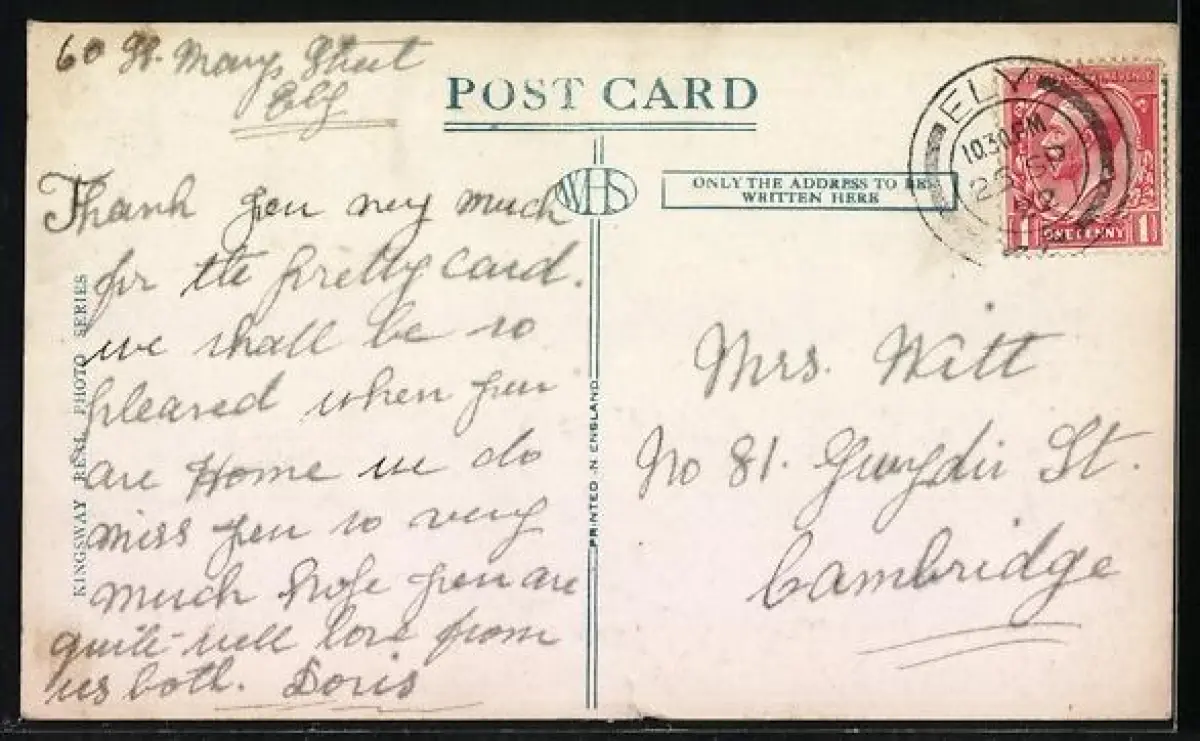 60 St. Marys Street
Ely
Thank you very much
for the pretty card.
we shall be so
pleased when you
are Home we do
miss you so very
much hope you are
quite well love from
us both. Doris
KINGSWAY REAL PHOTO SERIES
POST CARD
WHS
PRINTED IN ENGLAND
ONLY THE ADDRESS TO BE
WRITTEN HERE
ELY
10.30 PM
SP
1 ONE PENNY 1
Mrs. Witt
No 81. Gwydir St.
Cambridge